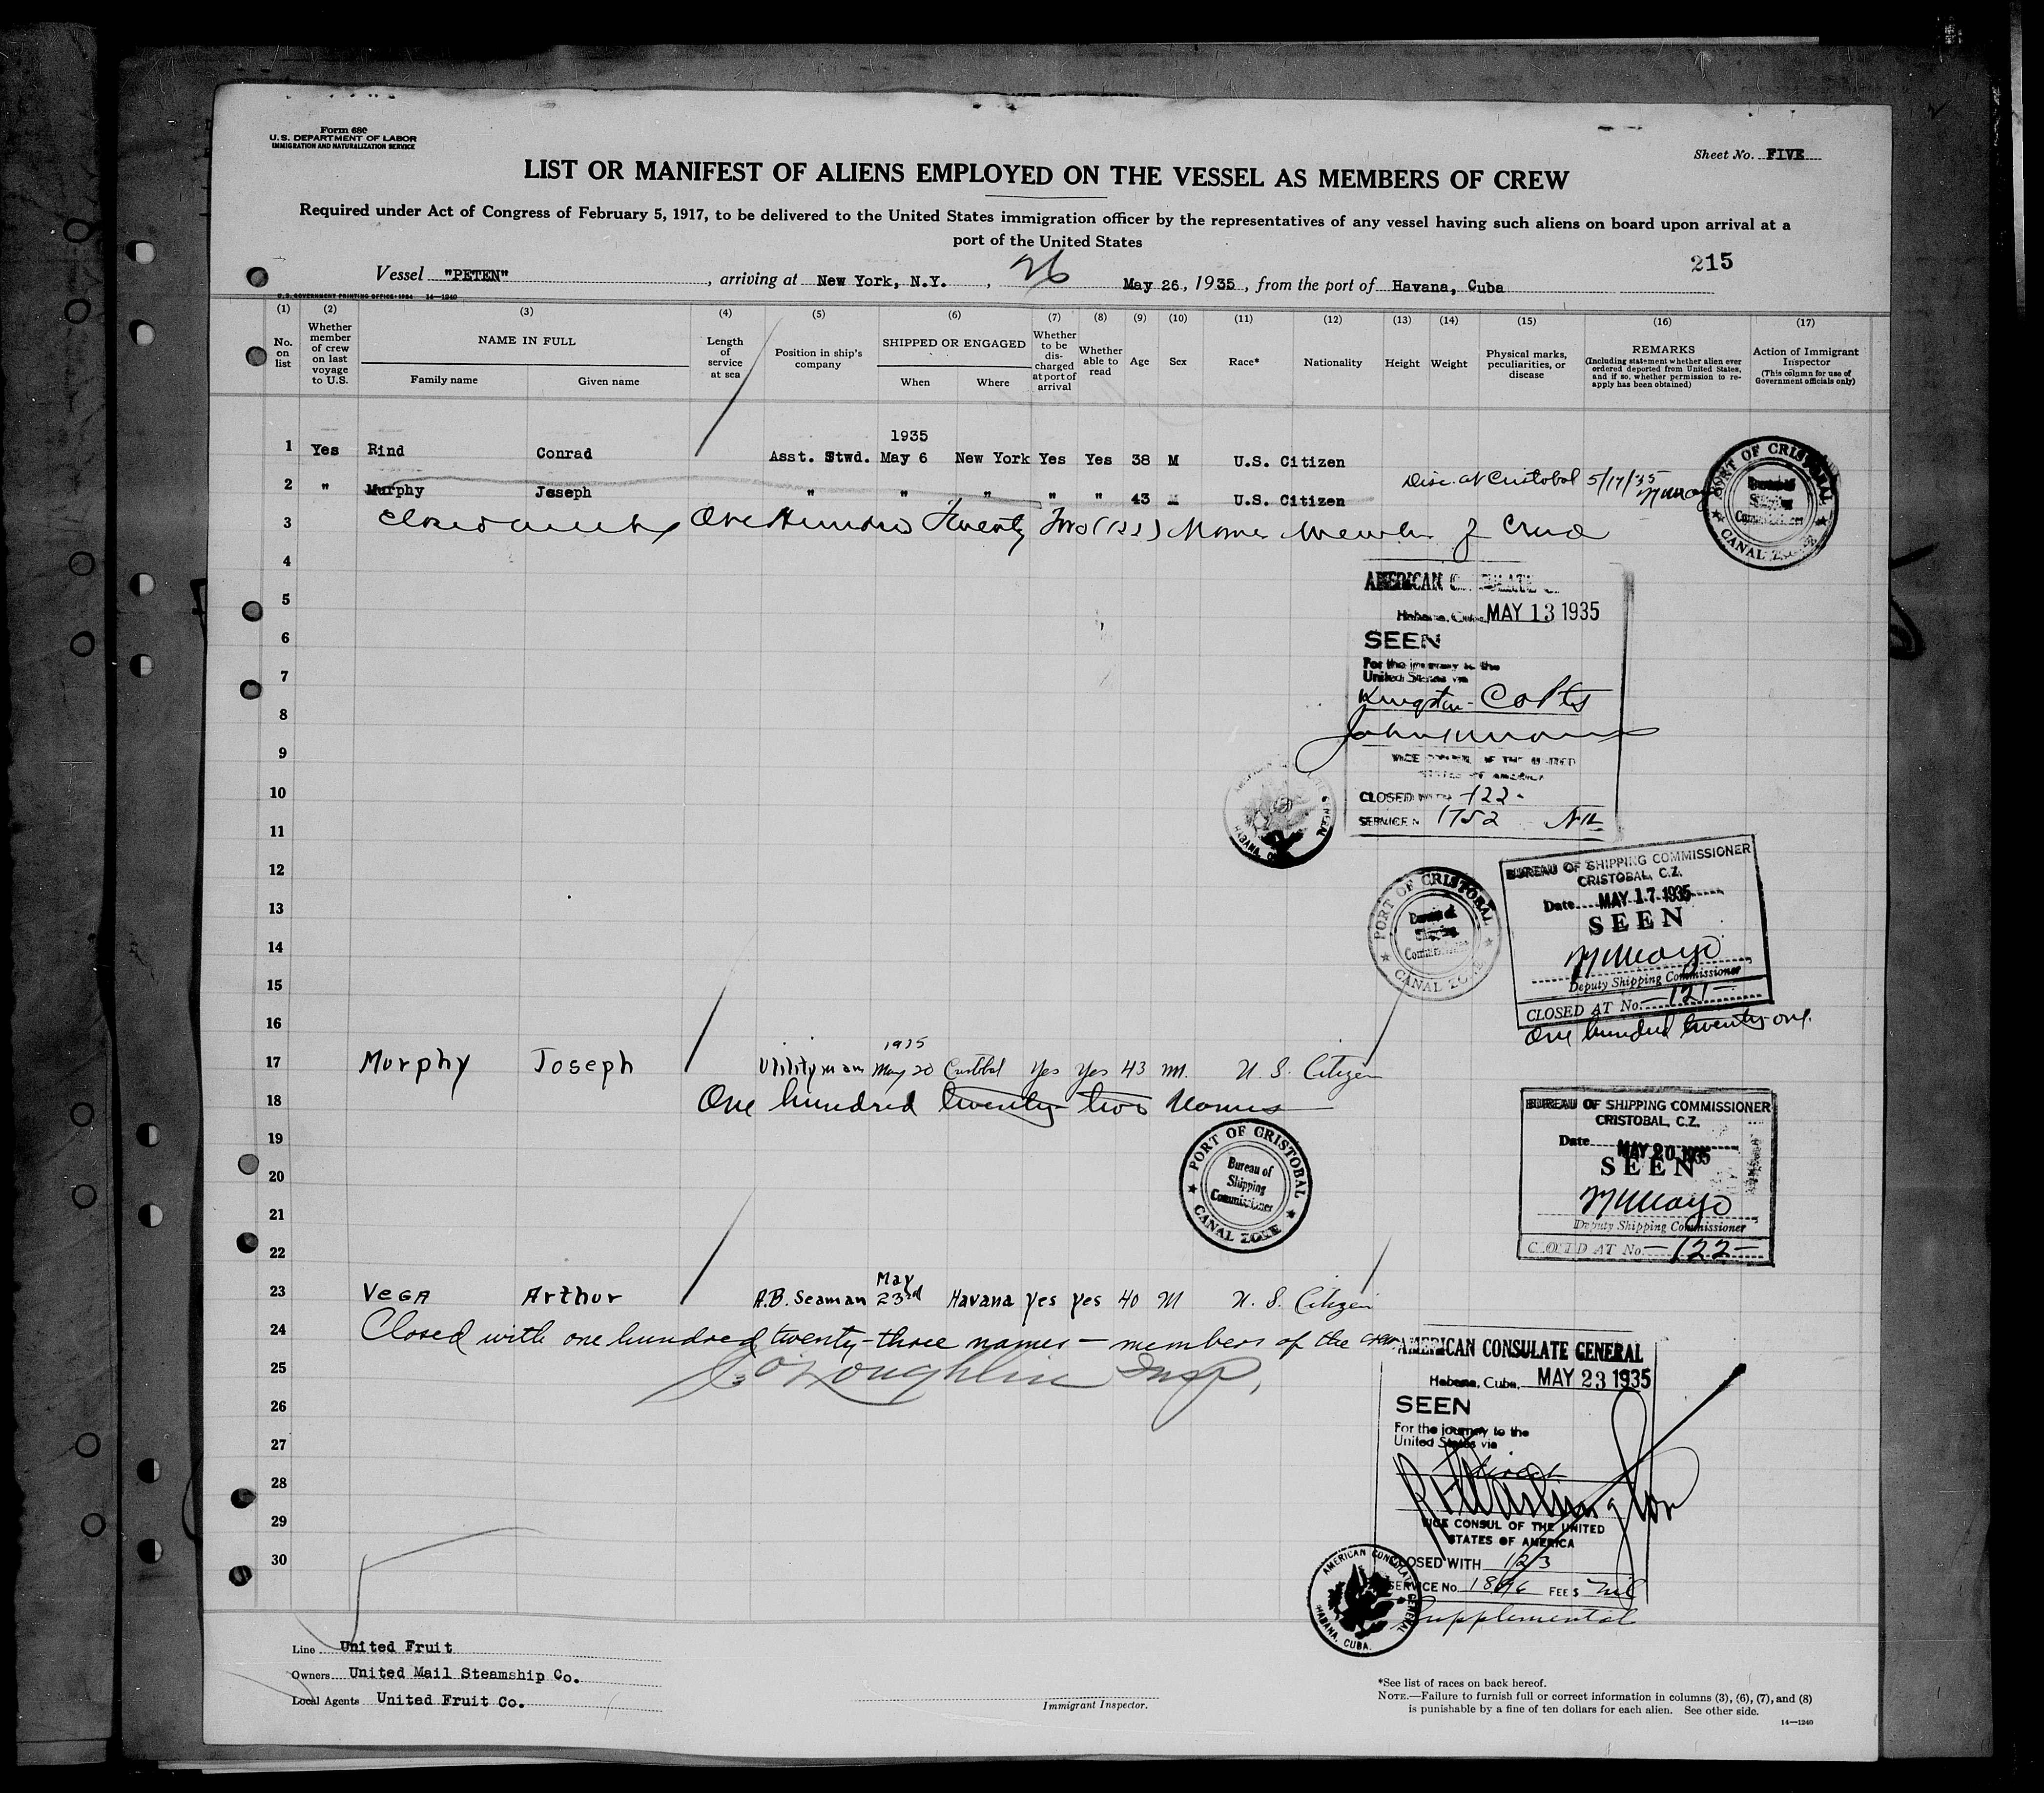 Form 680
U. S. DEPARTMENT OF LABOR
IMMIGRATION AND NATURALIZATION SERVICE
Sheet No. FIVE
LIST OR MANIFEST OF ALIENS EMPLOYED ON THE VESSEL AS MEMBERS OF CREW
Required under Act of Congress of February 5, 1917, to be delivered to the United States immigration officer by the representatives of any vessel having such aliens on board upon arrival at a
port of the United States
215
Vessel "PETEN", arriving at New York, N.Y., 26 May 26, 1935, from the port of Havana, Cuba
U. S. GOVERNMENT PRINTING OFFICE: 1934 14—1240
(1) (2) (3) (4) (5) (6) (7) (8) (9) (10) (11) (12) (13) (14) (15) (16) (17)
No. on list
Whether member of crew on last voyage to U.S.
NAME IN FULL
Family name
Given name
Length of service at sea
Position in ship's company
SHIPPED OR ENGAGED
When
Where
Whether to be discharged at port of arrival
Whether able to read
Age
Sex
Race*
Nationality
Height
Weight
Physical marks, peculiarities, or disease
REMARKS
(Including statement whether alien ever ordered deported from United States, and if so, whether permission to reapply has been obtained)
Action of Immigrant Inspector
(This column for use of Government officials only)
1935
1 Yes Rind Conrad Asst. Stwd. May 6 New York Yes Yes 38 M U.S. Citizen
2 " Murphy Joseph " " " " " 43 M U.S. Citizen Disc. at Cristobal 5/17/35
PORT OF CRISTOBAL
Bureau of Shipping Commissioner
CANAL ZONE
3 One Hundred Twenty Two (122) Names Members of Crew
4
AMERICAN CONSULATE
5
Habana, Cuba, MAY 13 1935
6
SEEN
For the journey to the
7
United States via
Kingston-
8
9
VICE CONSUL OF THE UNITED
STATES OF AMERICA
10
CLOSED WITH 122-
11
SERVICE No 1752
HABANA
12
BUREAU OF SHIPPING COMMISSIONER
CRISTOBAL, C.Z.
13
Date MAY 17 1935
SEEN
14
PORT OF CRISTOBAL
Bureau of Shipping Commissioner
CANAL ZONE
15
Deputy Shipping Commissioner
CLOSED AT No. -121-
16
One hundred twenty-one.
1935
17 Murphy Joseph Utilityman May 20 Cristobal Yes Yes 43 M. U. S. Citizen
18 One hundred twenty two names
BUREAU OF SHIPPING COMMISSIONER
CRISTOBAL, C.Z.
19
Date MAY 20 1935
SEEN
20
PORT OF CRISTOBAL
Bureau of Shipping Commissioner
CANAL ZONE
21
Deputy Shipping Commissioner
22
CLOSED AT No -122-
May
23 Vega Arthur A.B. Seaman 23rd Havana yes yes 40 M U. S. Citizen
24 Closed with one hundred twenty-three names - members of the crew
AMERICAN CONSULATE GENERAL
25 O'Loughlin Insp.
Habana, Cuba, MAY 23 1935
26
SEEN
27
For the journey to the
United States via
28
direct
29
VICE CONSUL OF THE UNITED
STATES OF AMERICA
30
CLOSED WITH 123
SERVICE No. FEE $ nil
Supplemental
AMERICAN CONSULATE GENERAL
HABANA, CUBA.
Line United Fruit
Owners United Mail Steamship Co.
Local Agents United Fruit Co.
Immigrant Inspector.
*See list of races on back hereof.
NOTE.—Failure to furnish full or correct information in columns (3), (6), (7), and (8)
is punishable by a fine of ten dollars for each alien. See other side.
14—1240